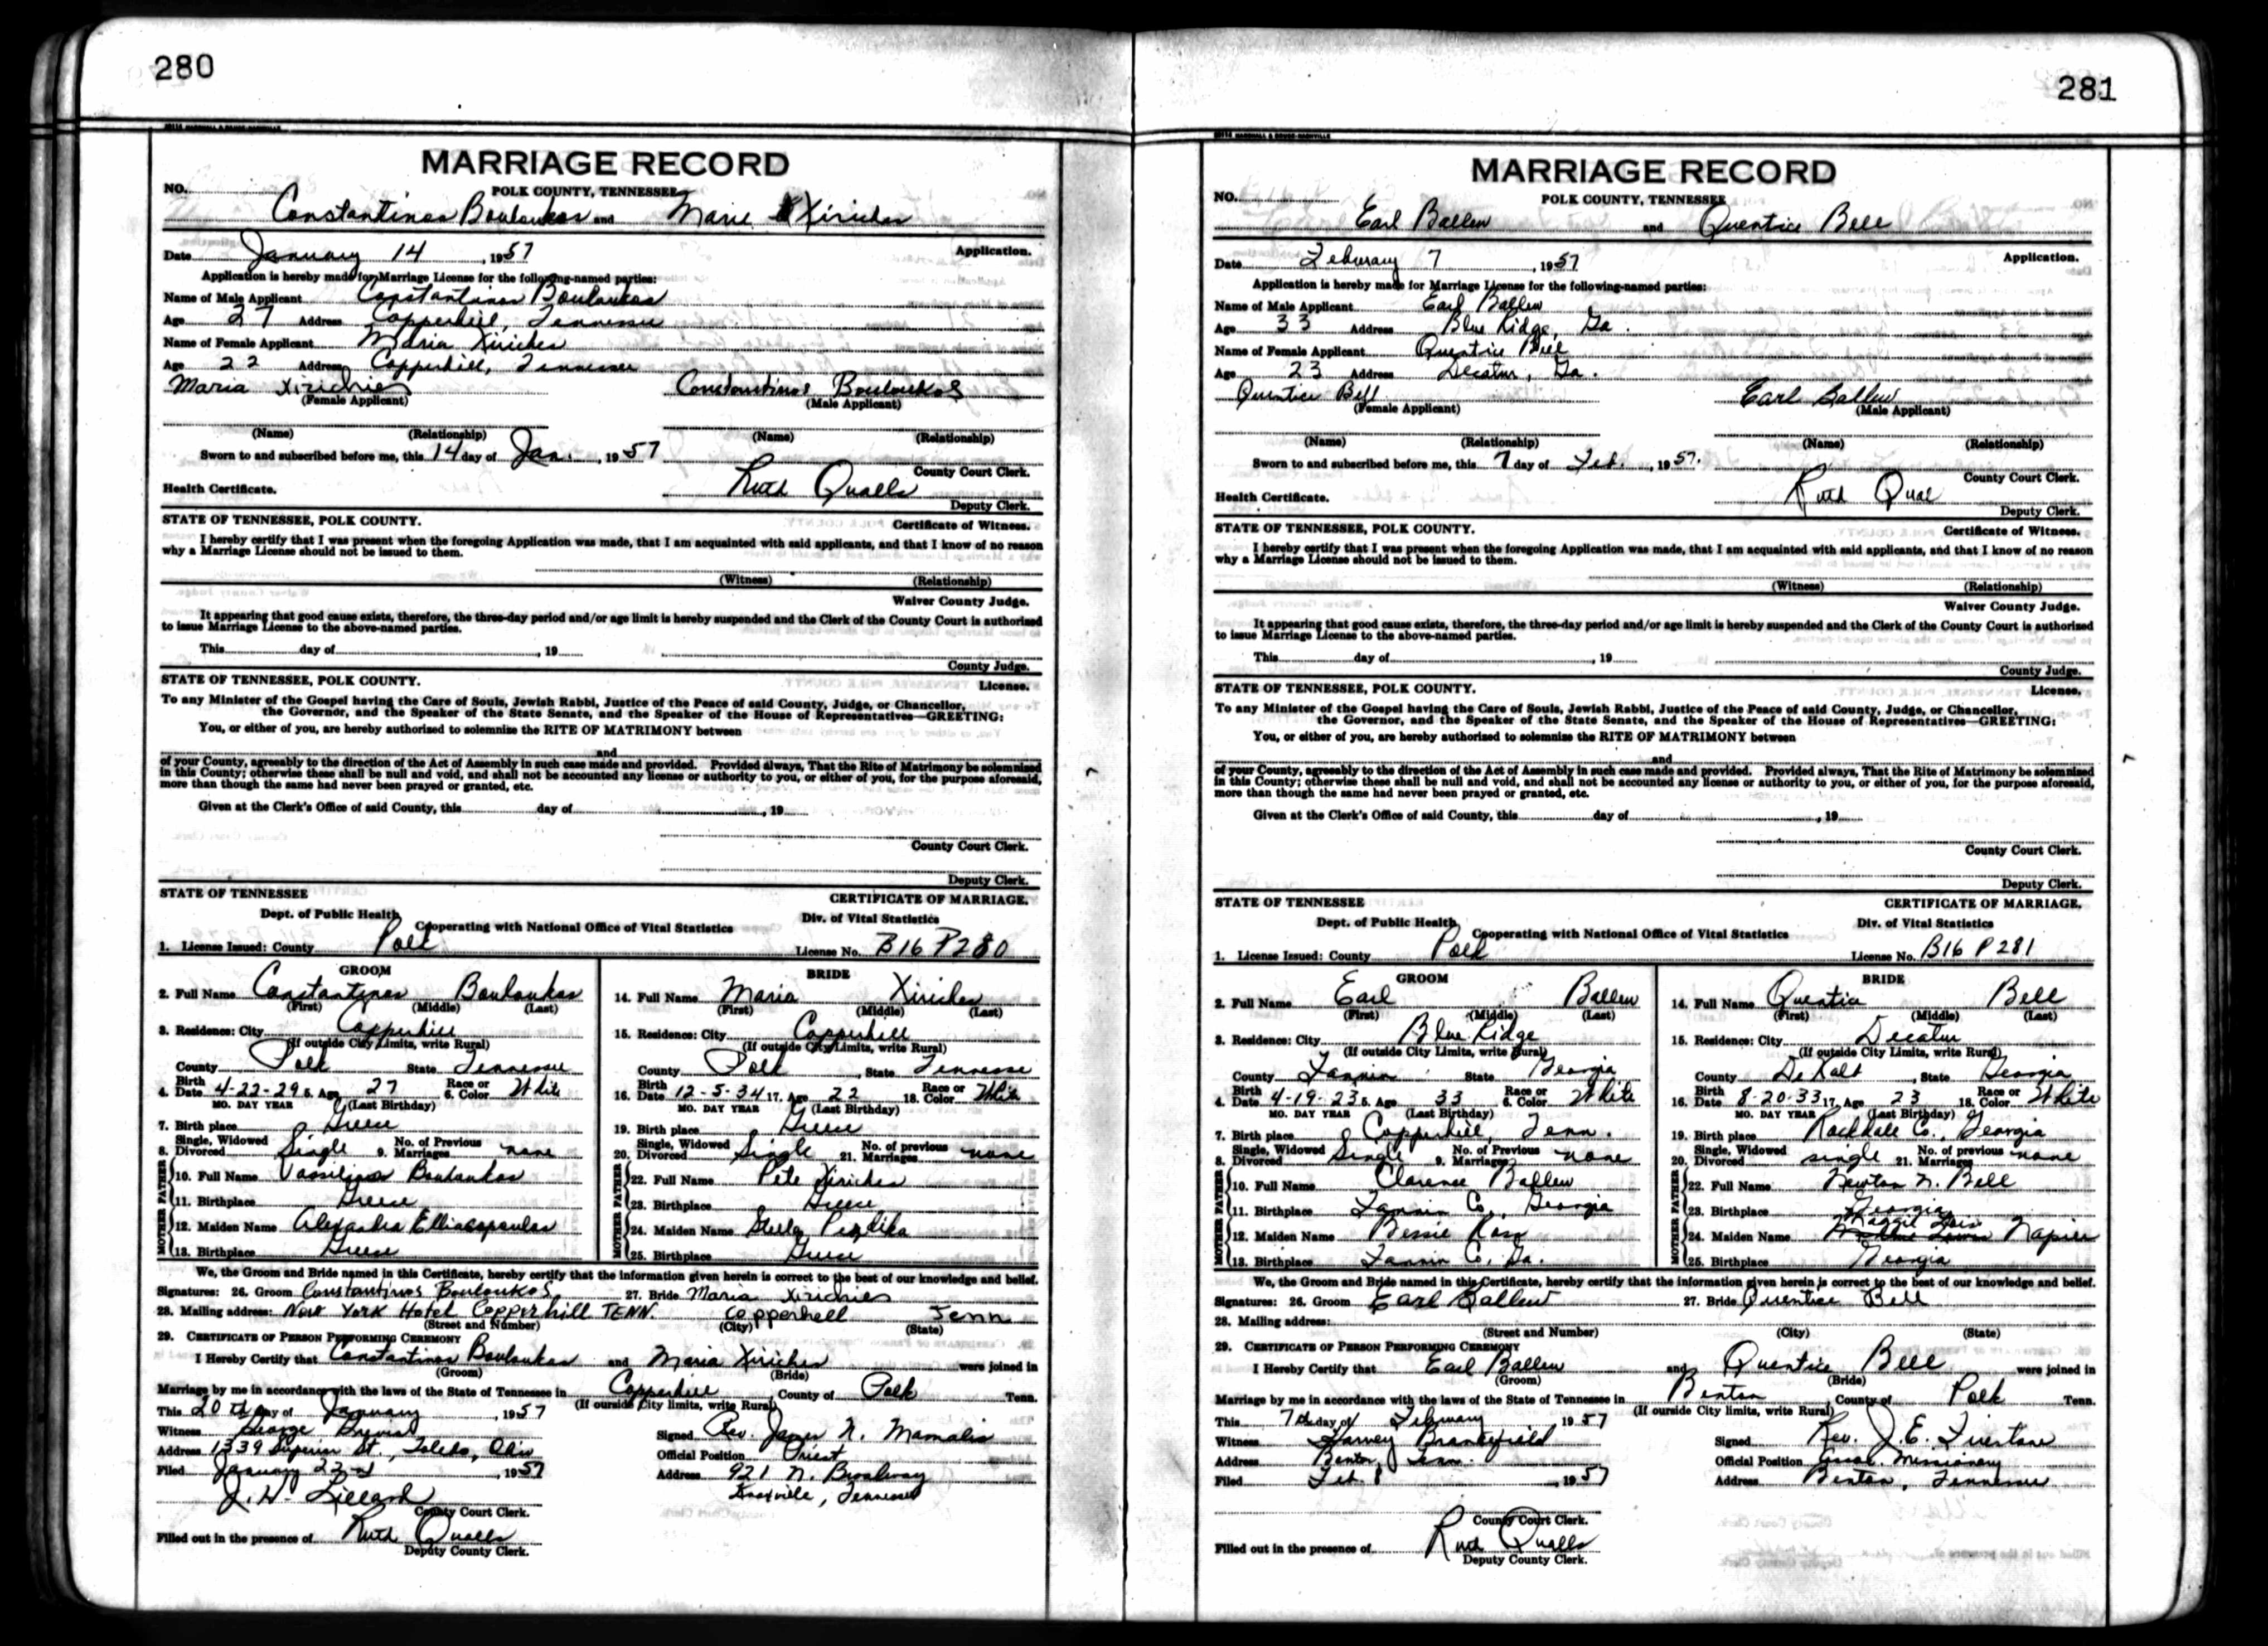 280
MARRIAGE RECORD
NO. POLK COUNTY, TENNESSEE
Constantinos Bouloukos and Marie Xirichis
Date January 14, 1957 Application.
Application is hereby made for Marriage License for the following-named parties:
Name of Male Applicant Constantinos Bouloukos
Age 27 Address Copperhill, Tennessee
Name of Female Applicant Maria Xirichis
Age 22 Address Copperhill, Tennessee
Maria Xirichies Constantinos Bouloukos
(Female Applicant) (Male Applicant)
(Name) (Relationship) (Name) (Relationship)
Sworn to and subscribed before me, this 14 day of Jan., 1957
County Court Clerk.
Health Certificate. Ruth Qualls
Deputy Clerk.
STATE OF TENNESSEE, POLK COUNTY. Certificate of Witness.
I hereby certify that I was present when the foregoing Application was made, that I am acquainted with said applicants, and that I know of no reason
why a Marriage License should not be issued to them.
(Witness) (Relationship)
Waiver County Judge.
It appearing that good cause exists, therefore, the three-day period and/or age limit is hereby suspended and the Clerk of the County Court is authorized
to issue Marriage License to the above-named parties.
This day of , 19
County Judge.
STATE OF TENNESSEE, POLK COUNTY. License.
To any Minister of the Gospel having the Care of Souls, Jewish Rabbi, Justice of the Peace of said County, Judge, or Chancellor,
the Governor, and the Speaker of the State Senate, and the Speaker of the House of Representatives—GREETING:
You, or either of you, are hereby authorized to solemnize the RITE OF MATRIMONY between
and
of your County, agreeably to the direction of the Act of Assembly in such case made and provided. Provided always, That the Rite of Matrimony be solemnized
in this County; otherwise these shall be null and void, and shall not be accounted any license or authority to you, or either of you, for the purpose aforesaid,
more than though the same had never been prayed or granted, etc.
Given at the Clerk's Office of said County, this day of , 19
County Court Clerk.
Deputy Clerk.
STATE OF TENNESSEE CERTIFICATE OF MARRIAGE.
Dept. of Public Health Div. of Vital Statistics
Cooperating with National Office of Vital Statistics
1. License Issued: County Polk License No. B16 P280
GROOM BRIDE
2. Full Name Constantinos Bouloukos 14. Full Name Maria Xirichis
(First) (Middle) (Last) (First) (Middle) (Last)
3. Residence: City Copperhill 15. Residence: City Copperhill
(If outside City Limits, write Rural) (If outside City Limits, write Rural)
County Polk State Tennessee County Polk, State Tennesse
4. Birth Date 4-22-29 5. Age 27 6. Race or Color White 16. Birth Date 12-5-34 17. Age 22 18. Race or Color White
MO. DAY YEAR (Last Birthday) MO. DAY YEAR (Last Birthday)
7. Birth place Greece 19. Birth place Greece
8. Single, Widowed Divorced Single 9. No. of Previous Marriages none 20. Single, Widowed Divorced Single 21. No. of previous Marriages none
FATHER 10. Full Name Vassilios Bouloukos FATHER 22. Full Name Pete Xirichis
11. Birthplace Greece 23. Birthplace Greece
MOTHER 12. Maiden Name Alexandra Elliacopoulos MOTHER 24. Maiden Name Stella
13. Birthplace Greece 25. Birthplace Greece
We, the Groom and Bride named in this Certificate, hereby certify that the information given herein is correct to the best of our knowledge and belief.
Signatures: 26. Groom Constantinos Bouloukos 27. Bride Maria Xirichies
28. Mailing address: New York Hotel Copperhill TENN. Copperhill Tenn
(Street and Number) (City) (State)
29. CERTIFICATE OF PERSON PERFORMING CEREMONY
I Hereby Certify that Constantinos Bouloukos and Maria Xirichis were joined in
(Groom) (Bride)
Marriage by me in accordance with the laws of the State of Tennessee in Copperhill, County of Polk Tenn.
(If ourside City limits, write Rural)
This 20th day of January, 1957
Witness George Signed Rev. James N. Mamalis
Address 1339 Superior St., Toledo, Ohio Official Position Priest
Filed January 22nd, 1957 Address 921 N. Broadway
Knoxville, Tennessee
J. H. Lillard
County Court Clerk.
Filled out in the presence of Ruth Qualls
Deputy County Clerk.
281
MARRIAGE RECORD
NO. POLK COUNTY, TENNESSEE
Earl Ballew and Quentice Bell
Date Feburary 7, 1957 Application.
Application is hereby made for Marriage License for the following-named parties:
Name of Male Applicant Earl Ballew
Age 33 Address Blue Ridge, Ga.
Name of Female Applicant Quentice Bell
Age 23 Address Decatur, Ga.
Quentice Bell Earl Ballew
(Female Applicant) (Male Applicant)
(Name) (Relationship) (Name) (Relationship)
Sworn to and subscribed before me, this 7 day of Feb., 1957.
County Court Clerk.
Health Certificate. Ruth Qual
Deputy Clerk.
STATE OF TENNESSEE, POLK COUNTY. Certificate of Witness.
I hereby certify that I was present when the foregoing Application was made, that I am acquainted with said applicants, and that I know of no reason
why a Marriage License should not be issued to them.
(Witness) (Relationship)
Waiver County Judge.
It appearing that good cause exists, therefore, the three-day period and/or age limit is hereby suspended and the Clerk of the County Court is authorized
to issue Marriage License to the above-named parties.
This day of , 19
County Judge.
STATE OF TENNESSEE, POLK COUNTY. License.
To any Minister of the Gospel having the Care of Souls, Jewish Rabbi, Justice of the Peace of said County, Judge, or Chancellor,
the Governor, and the Speaker of the State Senate, and the Speaker of the House of Representatives—GREETING:
You, or either of you, are hereby authorized to solemnize the RITE OF MATRIMONY between
and
of your County, agreeably to the direction of the Act of Assembly in such case made and provided. Provided always, That the Rite of Matrimony be solemnized
in this County; otherwise these shall be null and void, and shall not be accounted any license or authority to you, or either of you, for the purpose aforesaid,
more than though the same had never been prayed or granted, etc.
Given at the Clerk's Office of said County, this day of , 19
County Court Clerk.
Deputy Clerk.
STATE OF TENNESSEE CERTIFICATE OF MARRIAGE.
Dept. of Public Health Div. of Vital Statistics
Cooperating with National Office of Vital Statistics
1. License Issued: County Polk License No. B16 P281
GROOM BRIDE
2. Full Name Earl Ballew 14. Full Name Quentice Bell
(First) (Middle) (Last) (First) (Middle) (Last)
3. Residence: City Blue Ridge 15. Residence: City Decatur
(If outside City Limits, write Rural) (If outside City Limits, write Rural)
County Fannin State Georgia County DeKalb, State Georgia
4. Birth Date 4-19-23 5. Age 33 6. Race or Color White 16. Birth Date 8-20-33 17. Age 23 18. Race or Color White
MO. DAY YEAR (Last Birthday) MO. DAY YEAR (Last Birthday)
7. Birth place Copperhill, Tenn. 19. Birth place Rockdale Co., Georgia
8. Single, Widowed Divorced Single 9. No. of Previous Marriages none 20. Single, Widowed Divorced single 21. No. of previous Marriages none
FATHER 10. Full Name Clarence Ballew FATHER 22. Full Name Newton N. Bell
11. Birthplace Fannin Co., Georgia 23. Birthplace Georgia
MOTHER 12. Maiden Name Bessie Ross MOTHER 24. Maiden Name Maggie Lois Napier
13. Birthplace Fannin Co, Ga. 25. Birthplace Georgia
We, the Groom and Bride named in this Certificate, hereby certify that the information given herein is correct to the best of our knowledge and belief.
Signatures: 26. Groom Earl Ballew 27. Bride Quentice Bell
28. Mailing address:
(Street and Number) (City) (State)
29. CERTIFICATE OF PERSON PERFORMING CEREMONY
I Hereby Certify that Earl Ballew and Quentice Bell were joined in
(Groom) (Bride)
Marriage by me in accordance with the laws of the State of Tennessee in Benton, County of Polk Tenn.
(If ourside City limits, write Rural)
This 7th day of February, 1957
Witness Harvey Brakefield Signed Rev. J. E. Firestone
Address Benton, Tenn. Official Position Assoc. Missionary
Filed Feb. 8, 1957 Address Benton, Tennessee
County Court Clerk.
Filled out in the presence of Ruth Qualls
Deputy County Clerk.